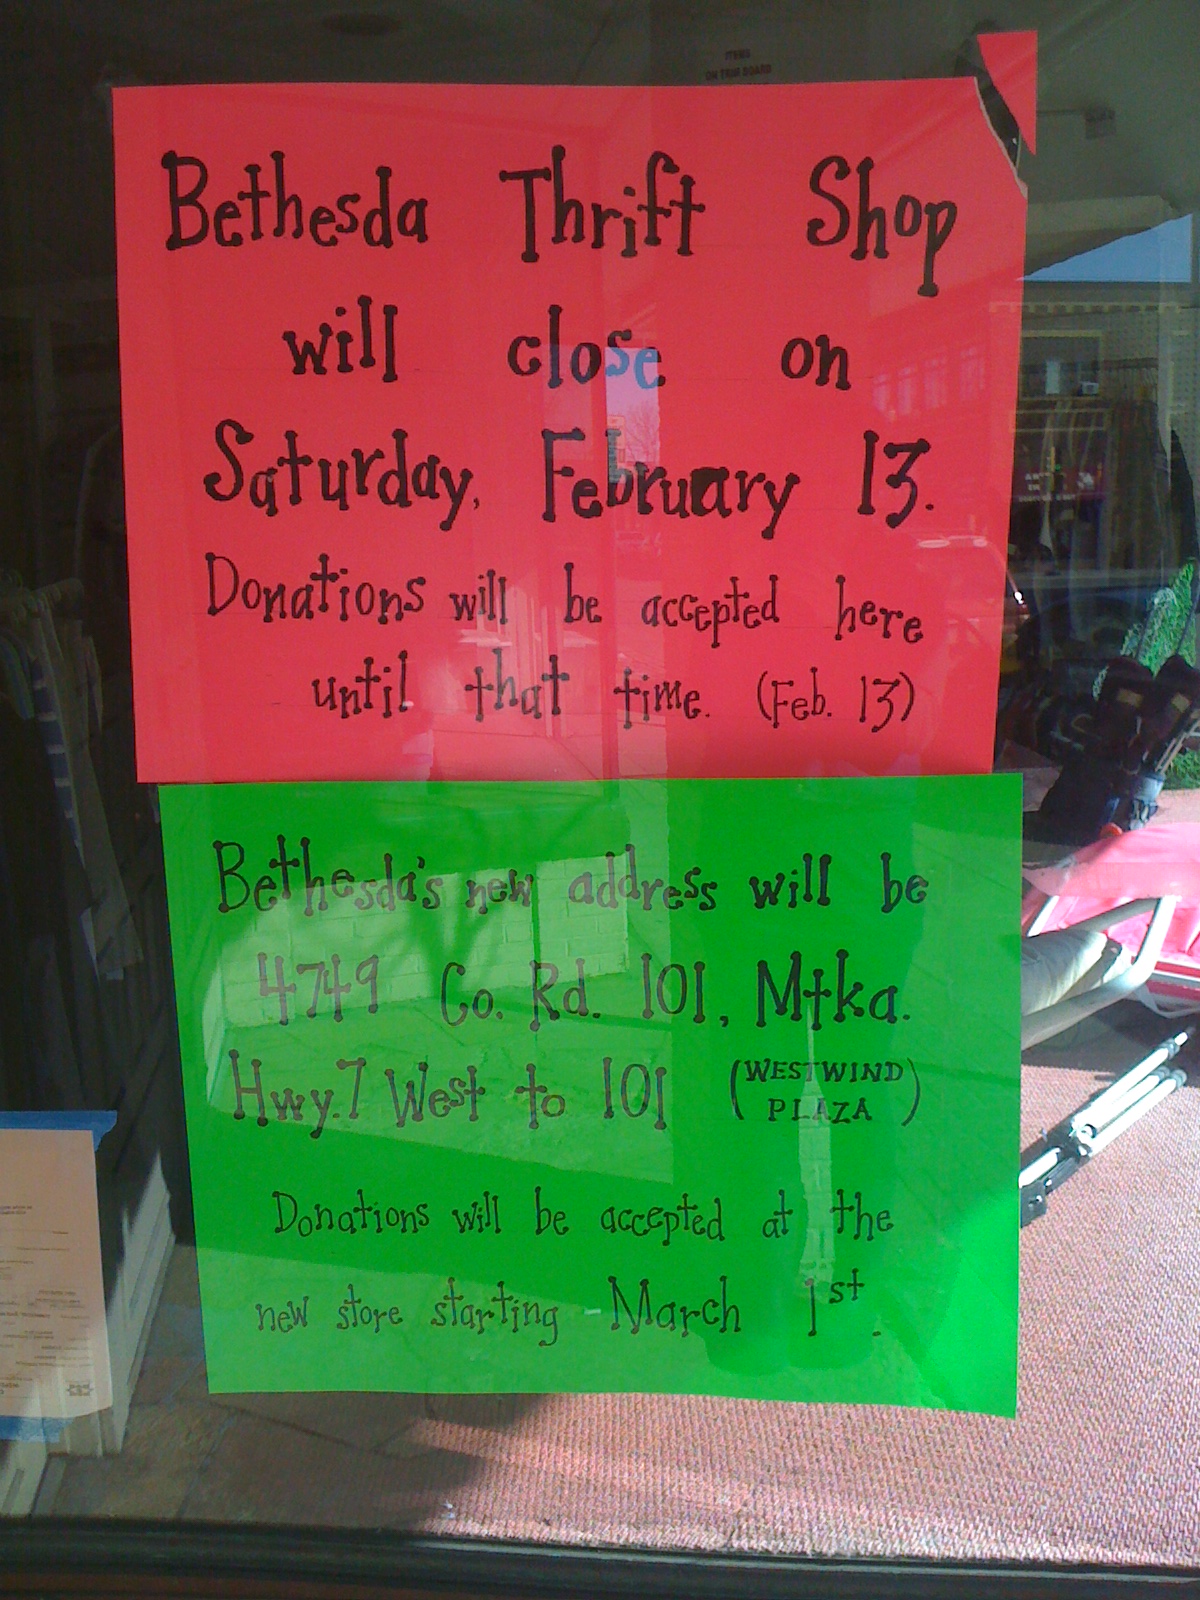 ITEMS
ON TRIM BOARD
Bethesda Thrift Shop
will close on
Saturday, February 13.
Donations will be accepted here
until that time. (Feb. 13)
Bethesda's new address will be
4749 Co. Rd. 101, Mtka.
Hwy. 7 West to 101 (WESTWIND
PLAZA)
Donations will be accepted at the
new store starting March 1st.